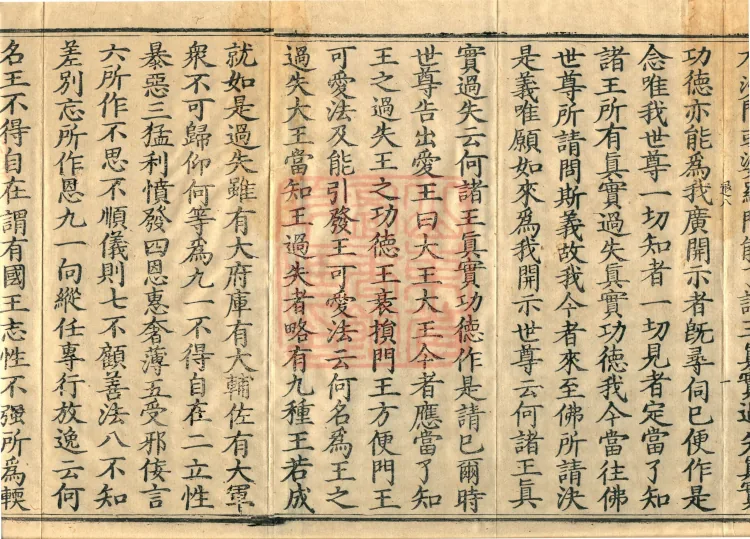 功德亦能爲我廣開示者旣尋伺已便作是
念唯我世尊一切知者一切見者定當了知
諸王所有眞實過失眞實功德我今當往佛
世尊所請問斯義故我今者來至佛所請決
是義唯願如來爲我開示世尊云何諸王眞
實過失云何諸王眞實功德作是請已爾時
世尊告出愛王曰大王大王今者應當了知
王之過失王之功德王衰損門王方便門王
可愛法及能引發王可愛法云何名爲王之
過失大王當知王過失者略有九種王若成
就如是過失雖有大府庫有大輔佐有大軍
衆不可歸仰何等爲九一不得自在二立性
暴惡三猛利憤發四恩惠奢薄五受邪佞言
六所作不思不順儀則七不顧善法八不知
差別忘所作恩九一向縱任專行放逸云何
名王不得自在謂有國王志性不强所爲輭